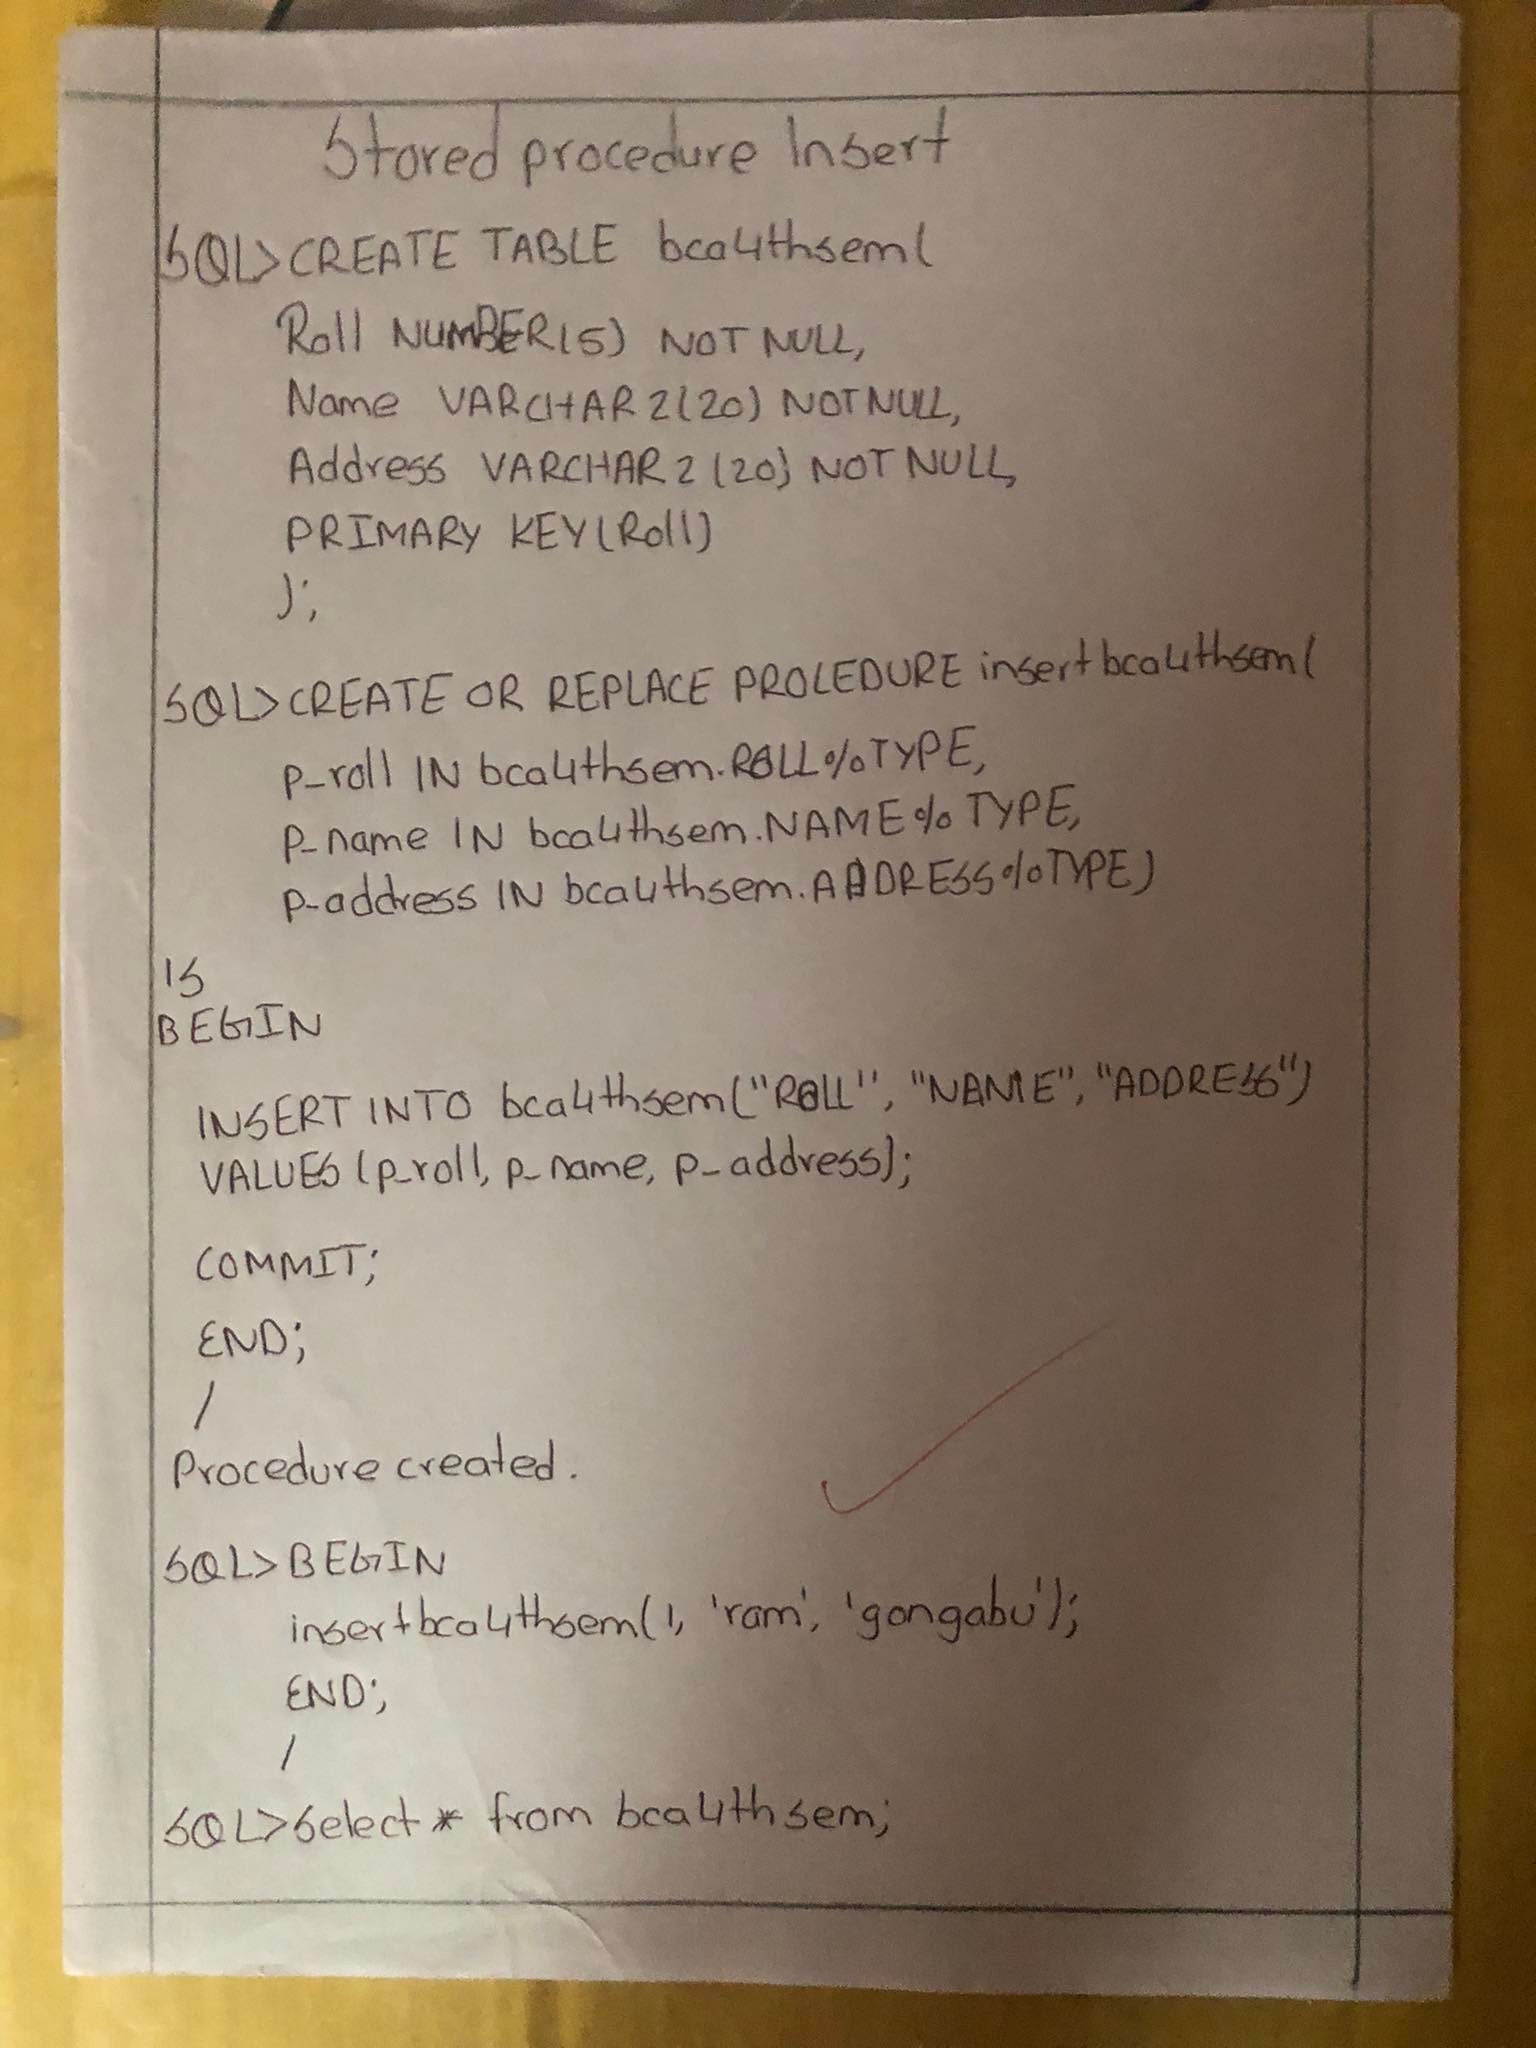 Stored procedure Insert
SQL>CREATE TABLE bca4thsem(
Roll NUMBER(5) NOT NULL,
Name VARCHAR2(20) NOT NULL,
Address VARCHAR2(20) NOT NULL,
PRIMARY KEY(Roll)
);
SQL>CREATE OR REPLACE PROCEDURE insertbca4thsem(
p_roll IN bca4thsem.ROLL%TYPE,
p_name IN bca4thsem.NAME%TYPE,
p_address IN bca4thsem.ADDRESS%TYPE)
IS
BEGIN
INSERT INTO bca4thsem("ROLL", "NAME", "ADDRESS")
VALUES (p_roll, p_name, p_address);
COMMIT;
END;
/
Procedure created.
SQL>BEGIN
insertbca4thsem(1, 'ram', 'gongabu');
END;
/
SQL>Select * from bca4thsem;